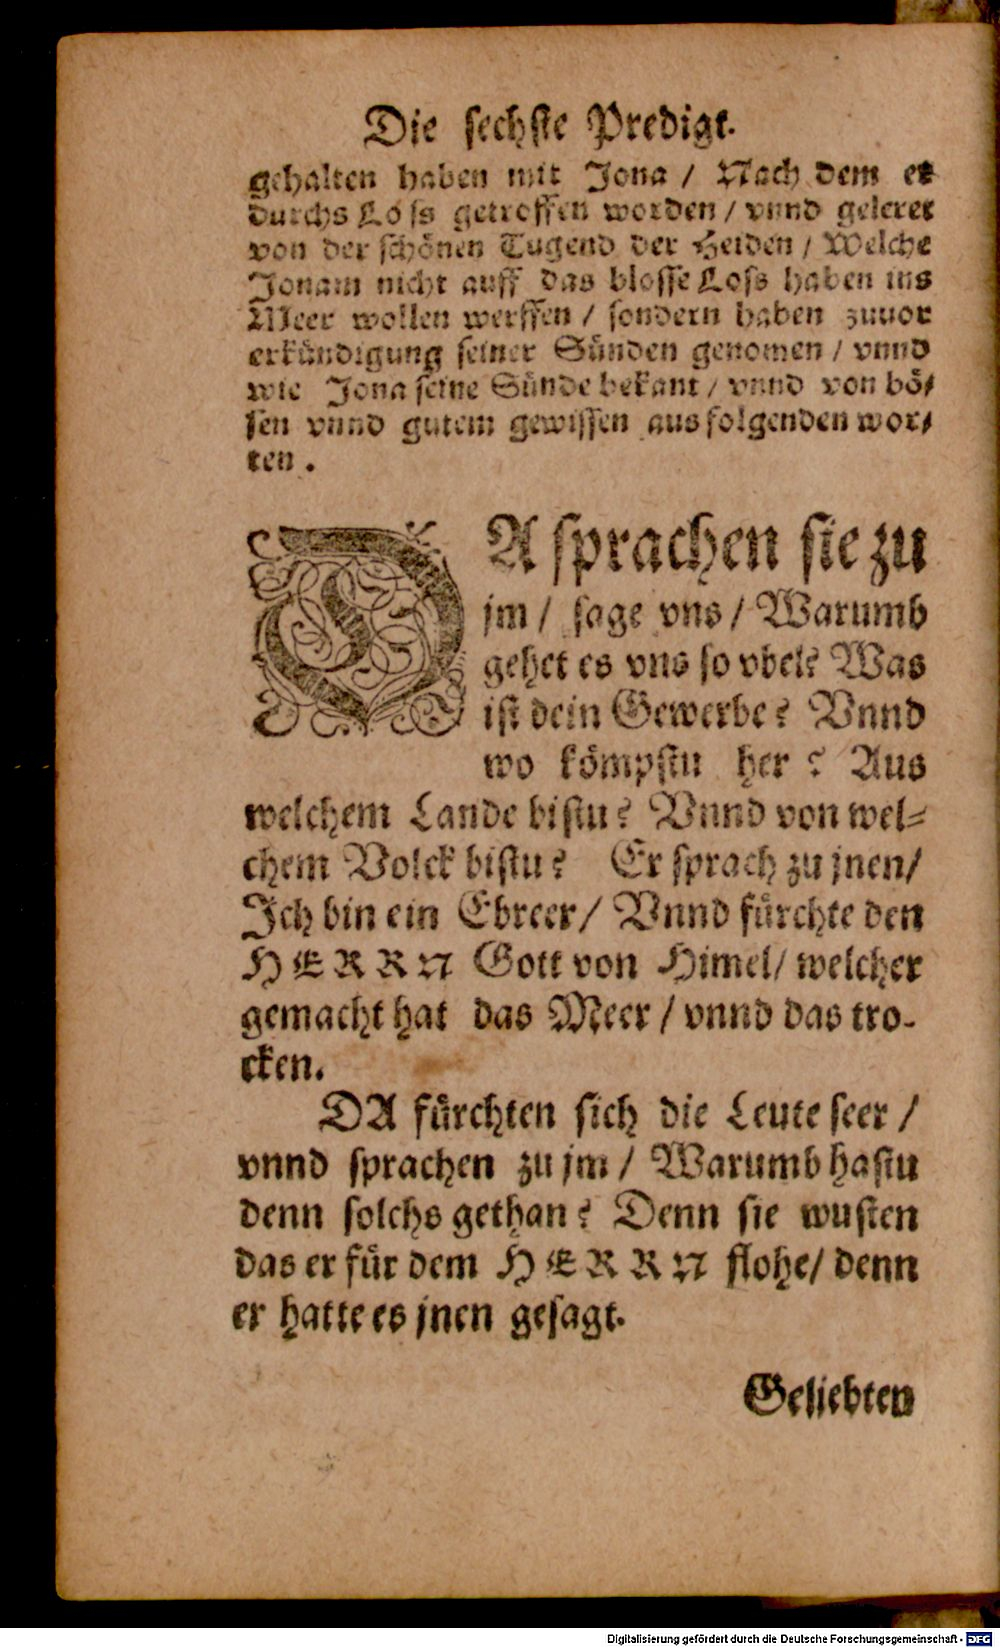 Die sechste Predigt.
gehalten haben mit Jona / Nach dem er
durchs Loſs getroffen worden / vnnd geleret
von der schönen Tugend der Heiden / Welche
Jonam nicht auff das blosse Loſs haben ins
Meer wollen werffen / sondern haben zuuor
erkündigung seiner Sünden genomen / vnnd
wie Jona seine Sünde bekant / vnnd von bö⸗
sen vnnd gutem gewissen aus folgenden wor⸗
ten .
DA sprachen sie zu
jm / sage vns / Warumb
gehet es vns so vbel? Was
ist dein Gewerbe? Vnnd
wo kömpstu her ? Aus
welchem Lande bistu? Vnnd von wel⸗
chem Volck bistu? Er sprach zu jnen/
Ich bin ein Ebreer/ Vnnd fürchte den
HERRN Gott von Himel/ welcher
gemacht hat das Meer / vnnd das tro-
cken.
DA fürchten sich die Leute seer /
vnnd sprachen zu jm / Warumb hastu
denn solchs gethan? Denn sie wusten
das er für dem HERRN flohe/ denn
er hatte es jnen gesagt.
Geliebten
Digitalisierung gefördert durch die Deutsche Forschungsgemeinschaft - DFG